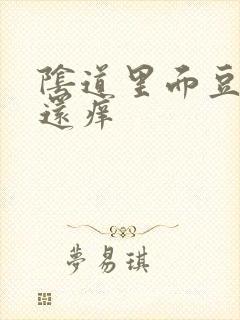 陰道里而豆
還癢
夢易琪